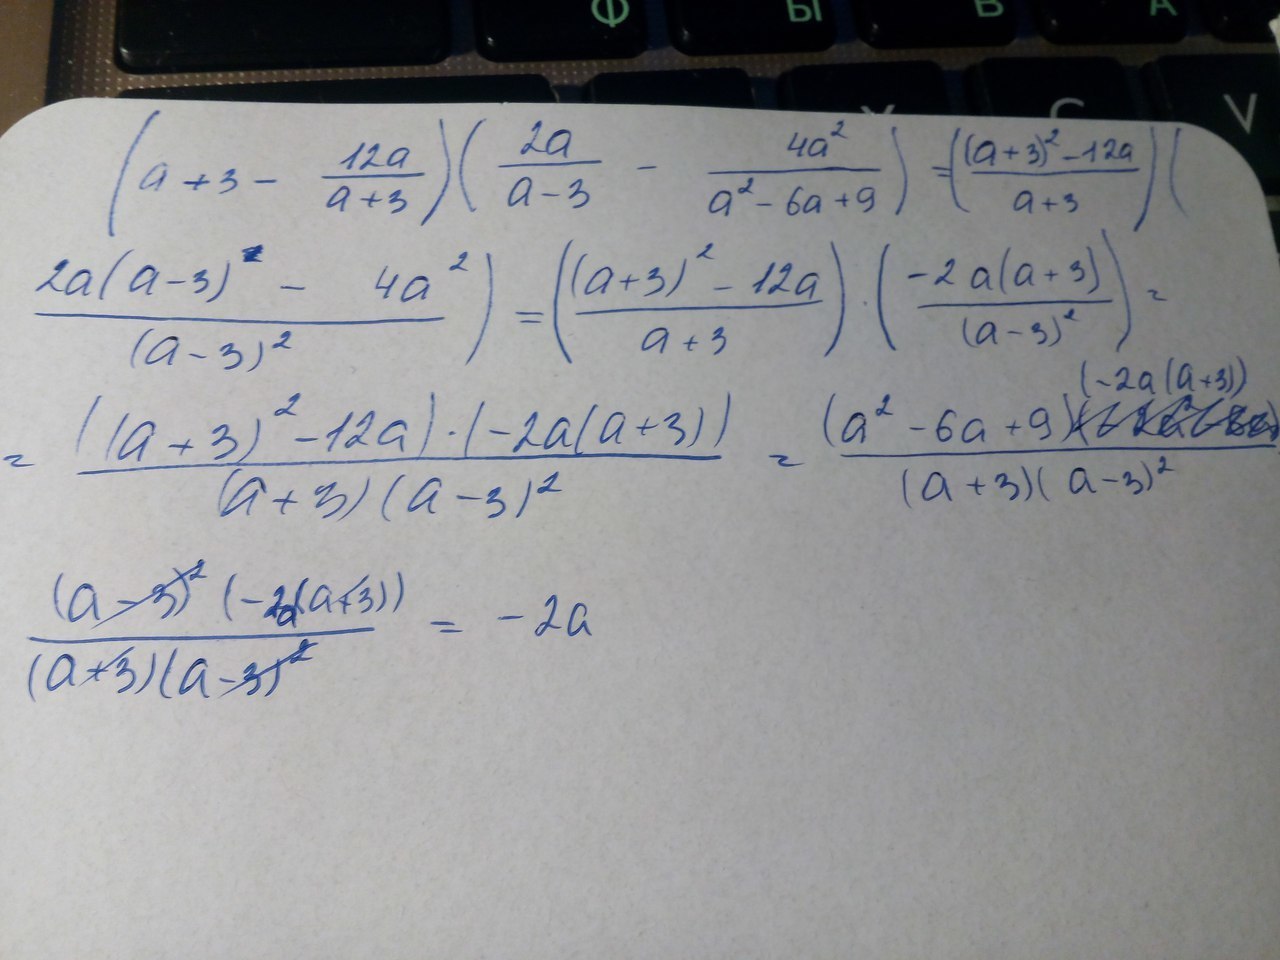 Ф Ы В А
Х С V
(a + 3 - \frac{12a}{a+3})(\frac{2a}{a-3} - \frac{4a^2}{a^2-6a+9}) = (\frac{(a+3)^2-12a}{a+3})(
\frac{2a(a-3) - 4a^2}{(a-3)^2}) = (\frac{(a+3)^2-12a}{a+3}) · (\frac{-2a(a+3)}{(a-3)^2}) =
= \frac{((a+3)^2-12a)·(-2a(a+3))}{(a+3)(a-3)^2} = \frac{(a^2-6a+9)(-2a(a+3))}{(a+3)(a-3)^2}
\frac{(a-3)^2(-2a(a+3))}{(a+3)(a-3)^2} = -2a